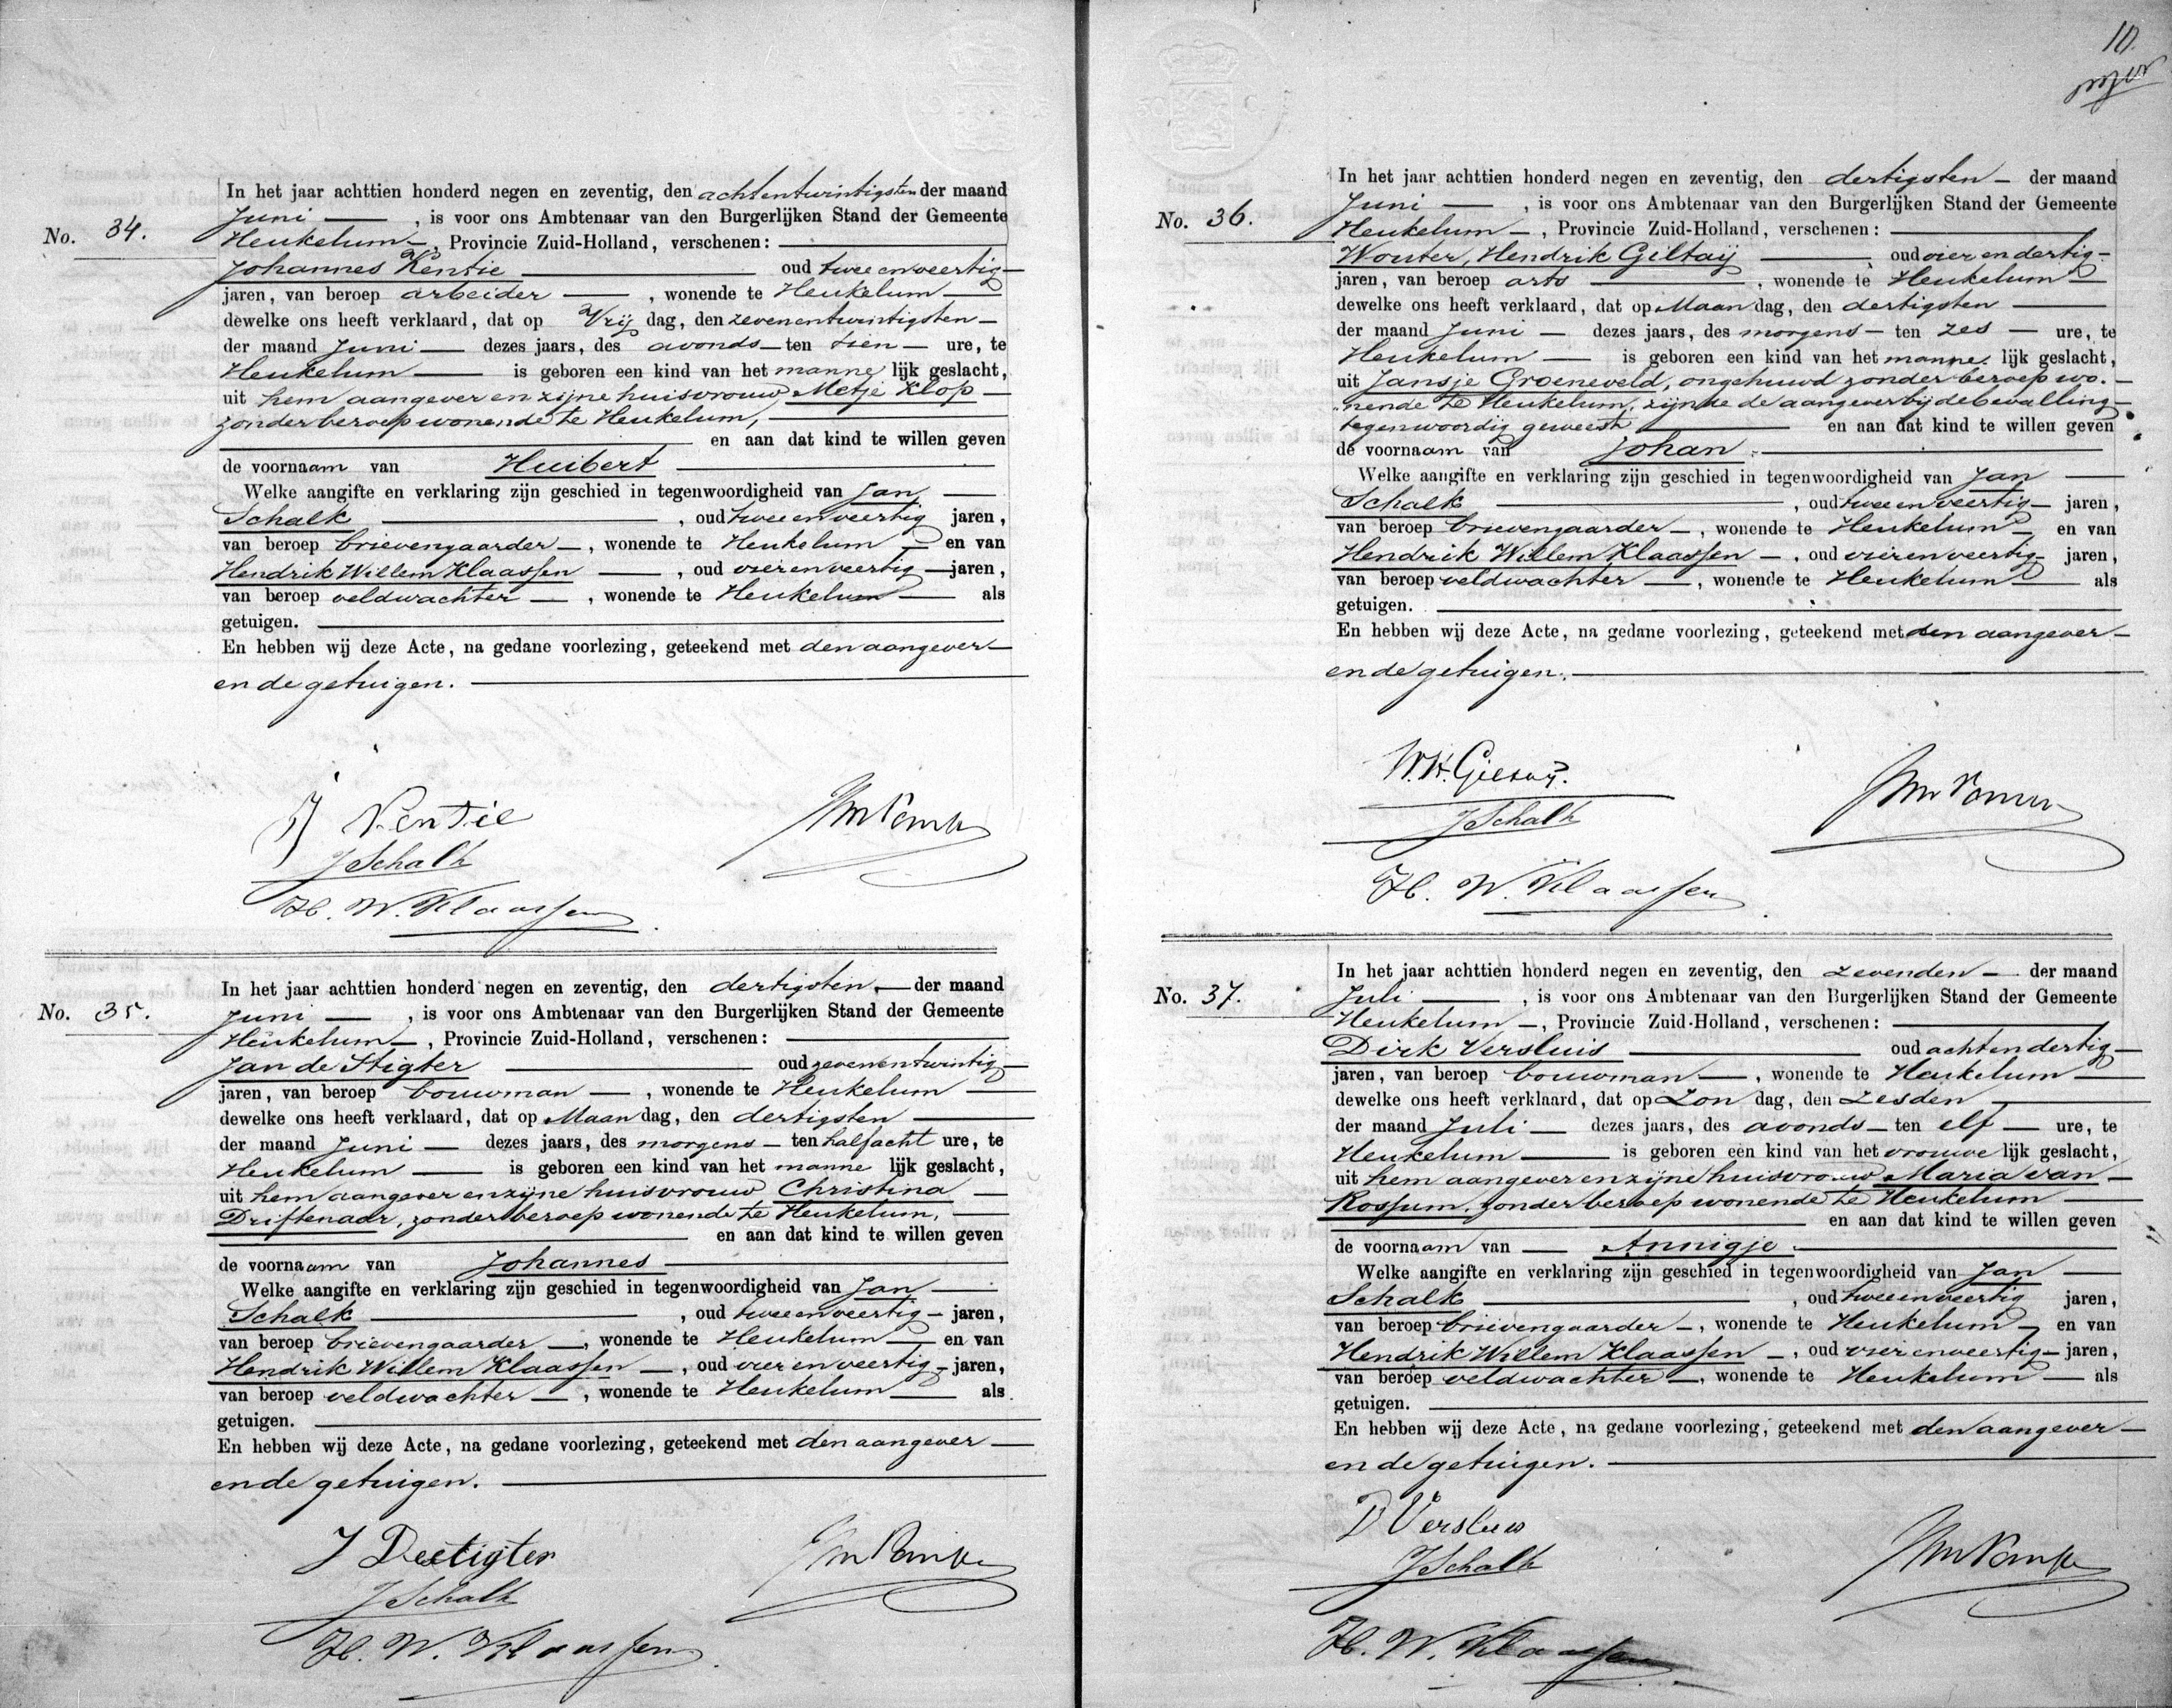 No. 34.
In het jaar achttien honderd negen en zeventig, den achtentwintigsten der maand
Juni, is voor ons Ambtenaar van den Burgerlijken Stand der Gemeente
Heukelum, Provincie Zuid-Holland, verschenen:
Johannes Kentie oud twee en veertig
jaren, van beroep arbeider, wonende te Heukelum
dewelke ons heeft verklaard, dat op Vrij dag, den zevenentwintigsten
der maand Juni dezes jaars, des avonds ten tien ure, te
Heukelum is geboren een kind van het manne lijk geslacht,
uit hem aangever en zijne huisvrouw Metje Klop
zonder beroep wonende te Heukelum,
en aan dat kind te willen geven
de voornaam van Huibert
Welke aangifte en verklaring zijn geschied in tegenwoordigheid van Jan
Schalk, oud twee en veertig jaren,
van beroep brievengaarder, wonende te Heukelum en van
Hendrik Willem Klaassen, oud vier en veertig jaren,
van beroep veldwachter, wonende te Heukelum als
getuigen.
En hebben wij deze Acte, na gedane voorlezing, geteekend met den aangever
en de getuigen.
J Kentie
J Schalk
H. W. Klaassen
No. 35.
In het jaar achttien honderd negen en zeventig, den dertigsten der maand
Juni, is voor ons Ambtenaar van den Burgerlijken Stand der Gemeente
Heukelum, Provincie Zuid-Holland, verschenen:
Jan de Stigter oud zevenentwintig
jaren, van beroep bouwman, wonende te Heukelum
dewelke ons heeft verklaard, dat op Maan dag, den dertigsten
der maand Juni dezes jaars, des morgens ten half acht ure, te
Heukelum is geboren een kind van het manne lijk geslacht,
uit hem aangever en zijne huisvrouw Christina
Driftenaar, zonder beroep wonende te Heukelum,
en aan dat kind te willen geven
de voornaam van Johannes
Welke aangifte en verklaring zijn geschied in tegenwoordigheid van Jan
Schalk, oud twee en veertig jaren,
van beroep brievengaarder, wonende te Heukelum en van
Hendrik Willem Klaassen, oud vier en veertig jaren,
van beroep veldwachter, wonende te Heukelum als
getuigen.
En hebben wij deze Acte, na gedane voorlezing, geteekend met den aangever
en de getuigen.
J Destigter
J Schalk
H. W. Klaassen
10.
No. 36.
In het jaar achttien honderd negen en zeventig, den dertigsten der maand
Juni, is voor ons Ambtenaar van den Burgerlijken Stand der Gemeente
Heukelum, Provincie Zuid-Holland, verschenen:
Wouter, Hendrik Giltaij oud vier en dertig
jaren, van beroep arts, wonende te Heukelum
dewelke ons heeft verklaard, dat op Maan dag, den dertigsten
der maand Juni dezes jaars, des morgens ten zes ure, te
Heukelum is geboren een kind van het manne lijk geslacht,
uit Jansje Groeneveld, ongehuwd zonder beroep wo-
nende te Heukelum, zijnde de aangever bij de bevalling
tegenwoordig geweest en aan dat kind te willen geven
de voornaam van Johan.
Welke aangifte en verklaring zijn geschied in tegenwoordigheid van Jan
Schalk, oud twee en veertig jaren,
van beroep brievengaarder, wonende te Heukelum en van
Hendrik Willem Klaassen, oud vier en veertig jaren,
van beroep veldwachter, wonende te Heukelum als
getuigen.
En hebben wij deze Acte, na gedane voorlezing, geteekend met den aangever
en de getuigen.
W.H. Giltaij.
J Schalk
H. W. Klaassen
No. 37.
In het jaar achttien honderd negen en zeventig, den zevenden der maand
Juli, is voor ons Ambtenaar van den Burgerlijken Stand der Gemeente
Heukelum, Provincie Zuid-Holland, verschenen:
Dirk Versluis oud achtendertig
jaren, van beroep bouwman, wonende te Heukelum
dewelke ons heeft verklaard, dat op Zon dag, den zesden
der maand Juli dezes jaars, des avonds ten elf ure, te
Heukelum is geboren een kind van het vrouwe lijk geslacht,
uit hem aangever en zijne huisvrouw Maria van
Rossum, zonder beroep wonende te Heukelum
en aan dat kind te willen geven
de voornaam van Annigje.
Welke aangifte en verklaring zijn geschied in tegenwoordigheid van Jan
Schalk, oud twee en veertig jaren,
van beroep brievengaarder, wonende te Heukelum en van
Hendrik Willem Klaassen, oud vier en veertig jaren,
van beroep veldwachter, wonende te Heukelum als
getuigen.
En hebben wij deze Acte, na gedane voorlezing, geteekend met den aangever
en de getuigen.
D Versluis
J Schalk
H. W. Klaassen